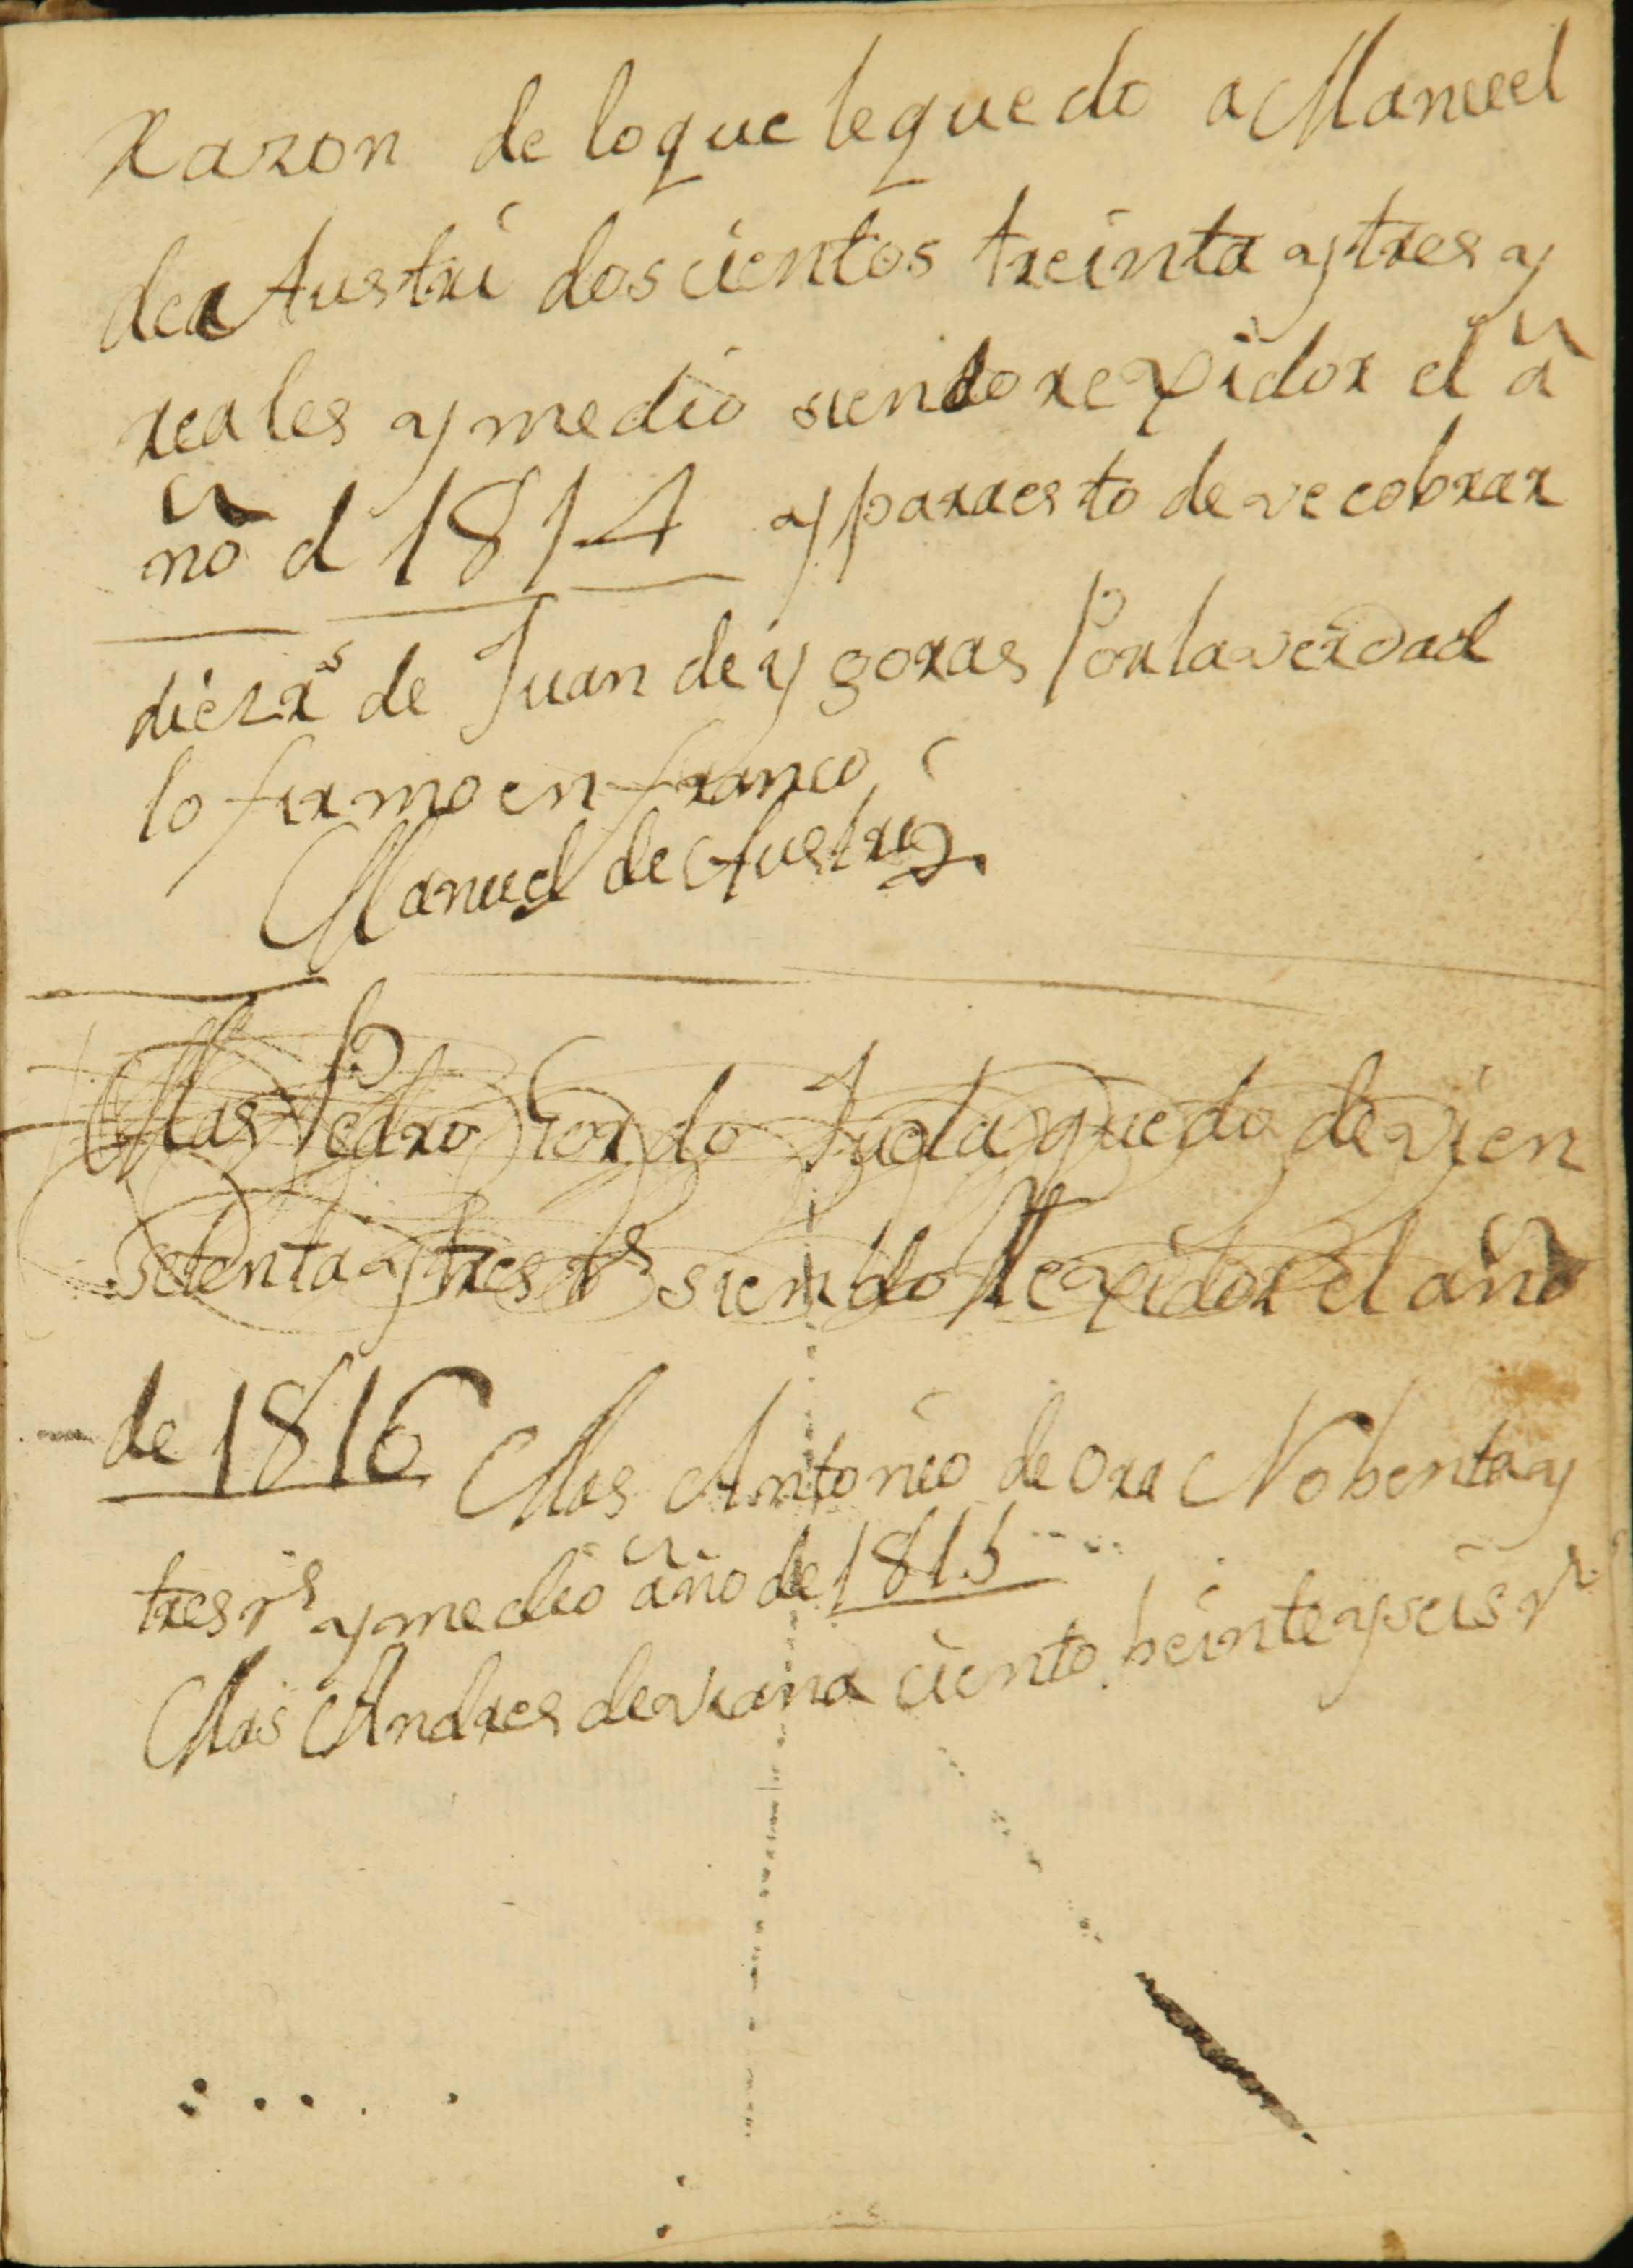 Razon de loque lequedo a Manuel
de Austri doscientos treinta y tres y
reales y medio siendo rexidor el a
ño d 1814 y para esto deve cobrar
diez rs de Juan de ygoras Por la verdad
lo firmo en franco
Manuel de Austri
Mas Pedro Gordo Juela quedo devien
setenta y tres rs siendo Rexidor el año
de 1816 Mas Antonio de Ora Nobenta y
tres rs y medio año de 1815
Mas Andres deviana ciento beinte y seis rs